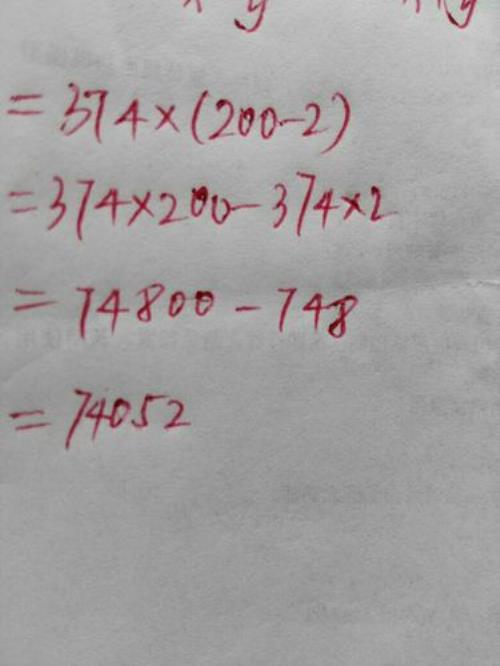 y y
=374×(200-2)
=374×200-374×2
=74800-748
=74052